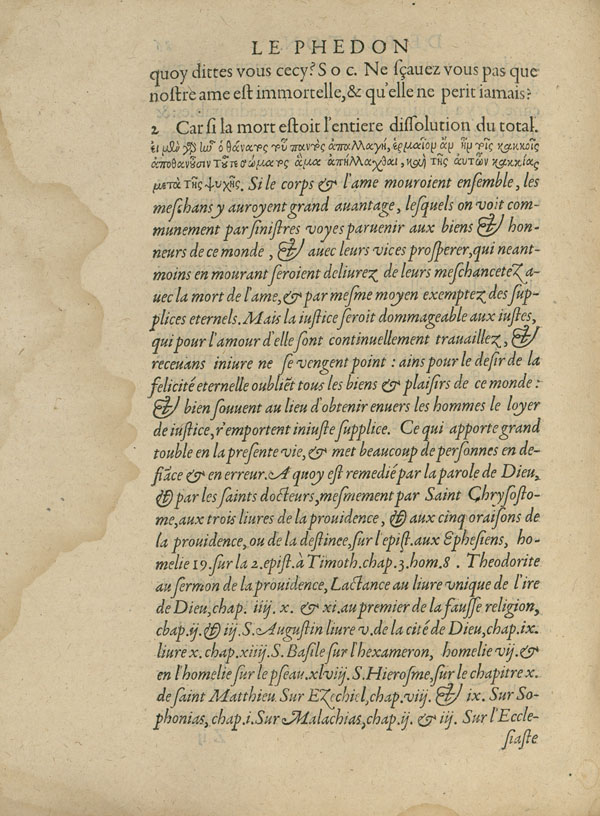 LE PHEDON
quoy dittes vous cecy? Soc. Ne sçauez vous pas que
nostre ame est immortelle, & qu'elle ne perit iamais?
2 Car si la mort estoit l'entiere dissolution du total.
εἰ μὲν γὰρ ἦν ὁ θάνατος τοῦ παντὸς ἀπαλλαγὴ, ἑρμαῖον ἂν ἦν τοῖς κακοῖς
ἀποθανοῦσιν τοῦ τε σώματος ἅμα ἀπηλλάχθαι, καὶ τῆς αὑτῶν κακίας
μετὰ τῆς ψυχῆς. Si le corps & l'ame mouroient ensemble, les
meschans y auroyent grand auantage, lesquels on voit com-
munement par sinistres voyes paruenir aux biens & hon-
neurs de ce monde, & auec leurs vices prosperer, qui neant-
moins en mourant seroient deliurez de leurs meschancetez a-
uec la mort de l'ame, & par mesme moyen exemptez des sup-
plices eternels. Mais la iustice seroit dommageable aux iustes,
qui pour l'amour d'elle sont continuellement trauaillez, &
receuans iniure ne se vengent point: ains pour le desir de la
felicité eternelle oubliẽt tous les biens & plaisirs de ce monde:
& bien souuent au lieu d'obtenir enuers les hommes le loyer
de iustice, r'emportent iniuste supplice. Ce qui apporte grand
touble en la presente vie, & met beaucoup de personnes en de-
fiãce & en erreur. A quoy est remedié par la parole de Dieu,
& par les saints docteurs, mesmement par Saint Chrysosto-
me, aux trois liures de la prouidence, & aux cinq oraisõns de
la prouidence, ou de la destinee, sur l'epist. aux Ephesiens, ho-
melie 19. sur la 2. epist. à Timoth. chap. 3. hom. 8. Theodorite
au sermon de la prouidence, Lactance au liure vnique de l'ire
de Dieu, chap. iiij. x. & xi. au premier de la fausse religion,
chap. ij. & iij. S. Augustin liure v. de la cité de Dieu, chap. ix.
liure x. chap. xiiij. S. Basile sur l'hexameron, homelie vij. &
en l'homelie sur le pseau. xlviij. S. Hierosme, sur le chapitre x.
de saint Matthieu. Sur Ezechiel, chap. viij. & ix. Sur So-
phonias, chap. i. Sur Malachias, chap. ij. & iij. Sur l'Eccle-
siaste